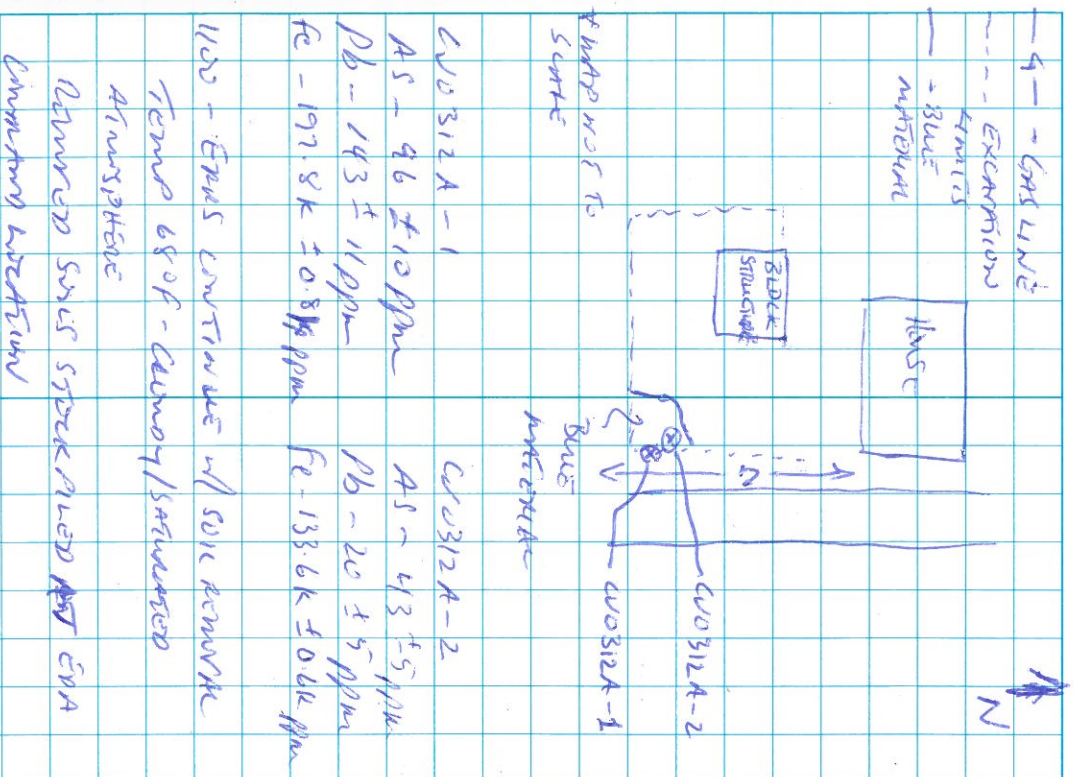 —G— - GAS LINE
---- EXCAVATION
LIMITS
— - BLUE
MATERIAL
N
HOUSE
BLOCK
STRUCTURE
G
CV0312A-2
CV0312A-1
BLUE
MATERIAL
* MAP NOT TO
SCALE
CV0312A-1
AS - 96 ± 10 ppm
Pb - 143 ± 11 ppm
Fe - 197.8K ± 0.8K ppm
CV0312A-2
AS - 43 ± 5 ppm
Pb - 20 ± 5 ppm
Fe - 133.6K ± 0.6K ppm
1100 - ERRS CONTINUE W/ SOIL REMOVAL
TEMP 68°F - CLOUDY/SATURATED
ATMOSPHERE
REMOVED SOILS STOCKPILED AT EPA
COMMAND LOCATION